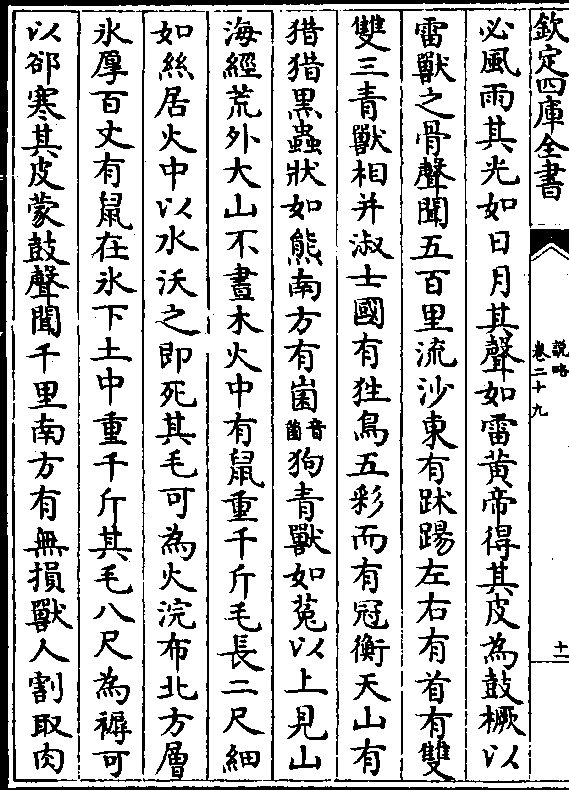 欽定四庫全書
說略
卷二十九
十一
必風雨其光如日月其聲如雷黃帝得其皮為鼓橛以
雷獸之骨聲聞五百里流沙東有䟣踢左右有首有雙
雙三青獸相并淑士國有狌鳥五彩而有冠衡天山有
猎猎黑蟲狀如熊南方有𡿺音菌狗青獸如菟以上見山
海經荒外大山不晝木火中有鼠重千斤毛長二尺細
如絲居火中以水沃之即死其毛可為火浣布北方層
氷厚百丈有鼠在氷下土中重千斤其毛八尺為褥可
以郤寒其皮蒙鼓聲聞千里南方有無損獸人割取肉